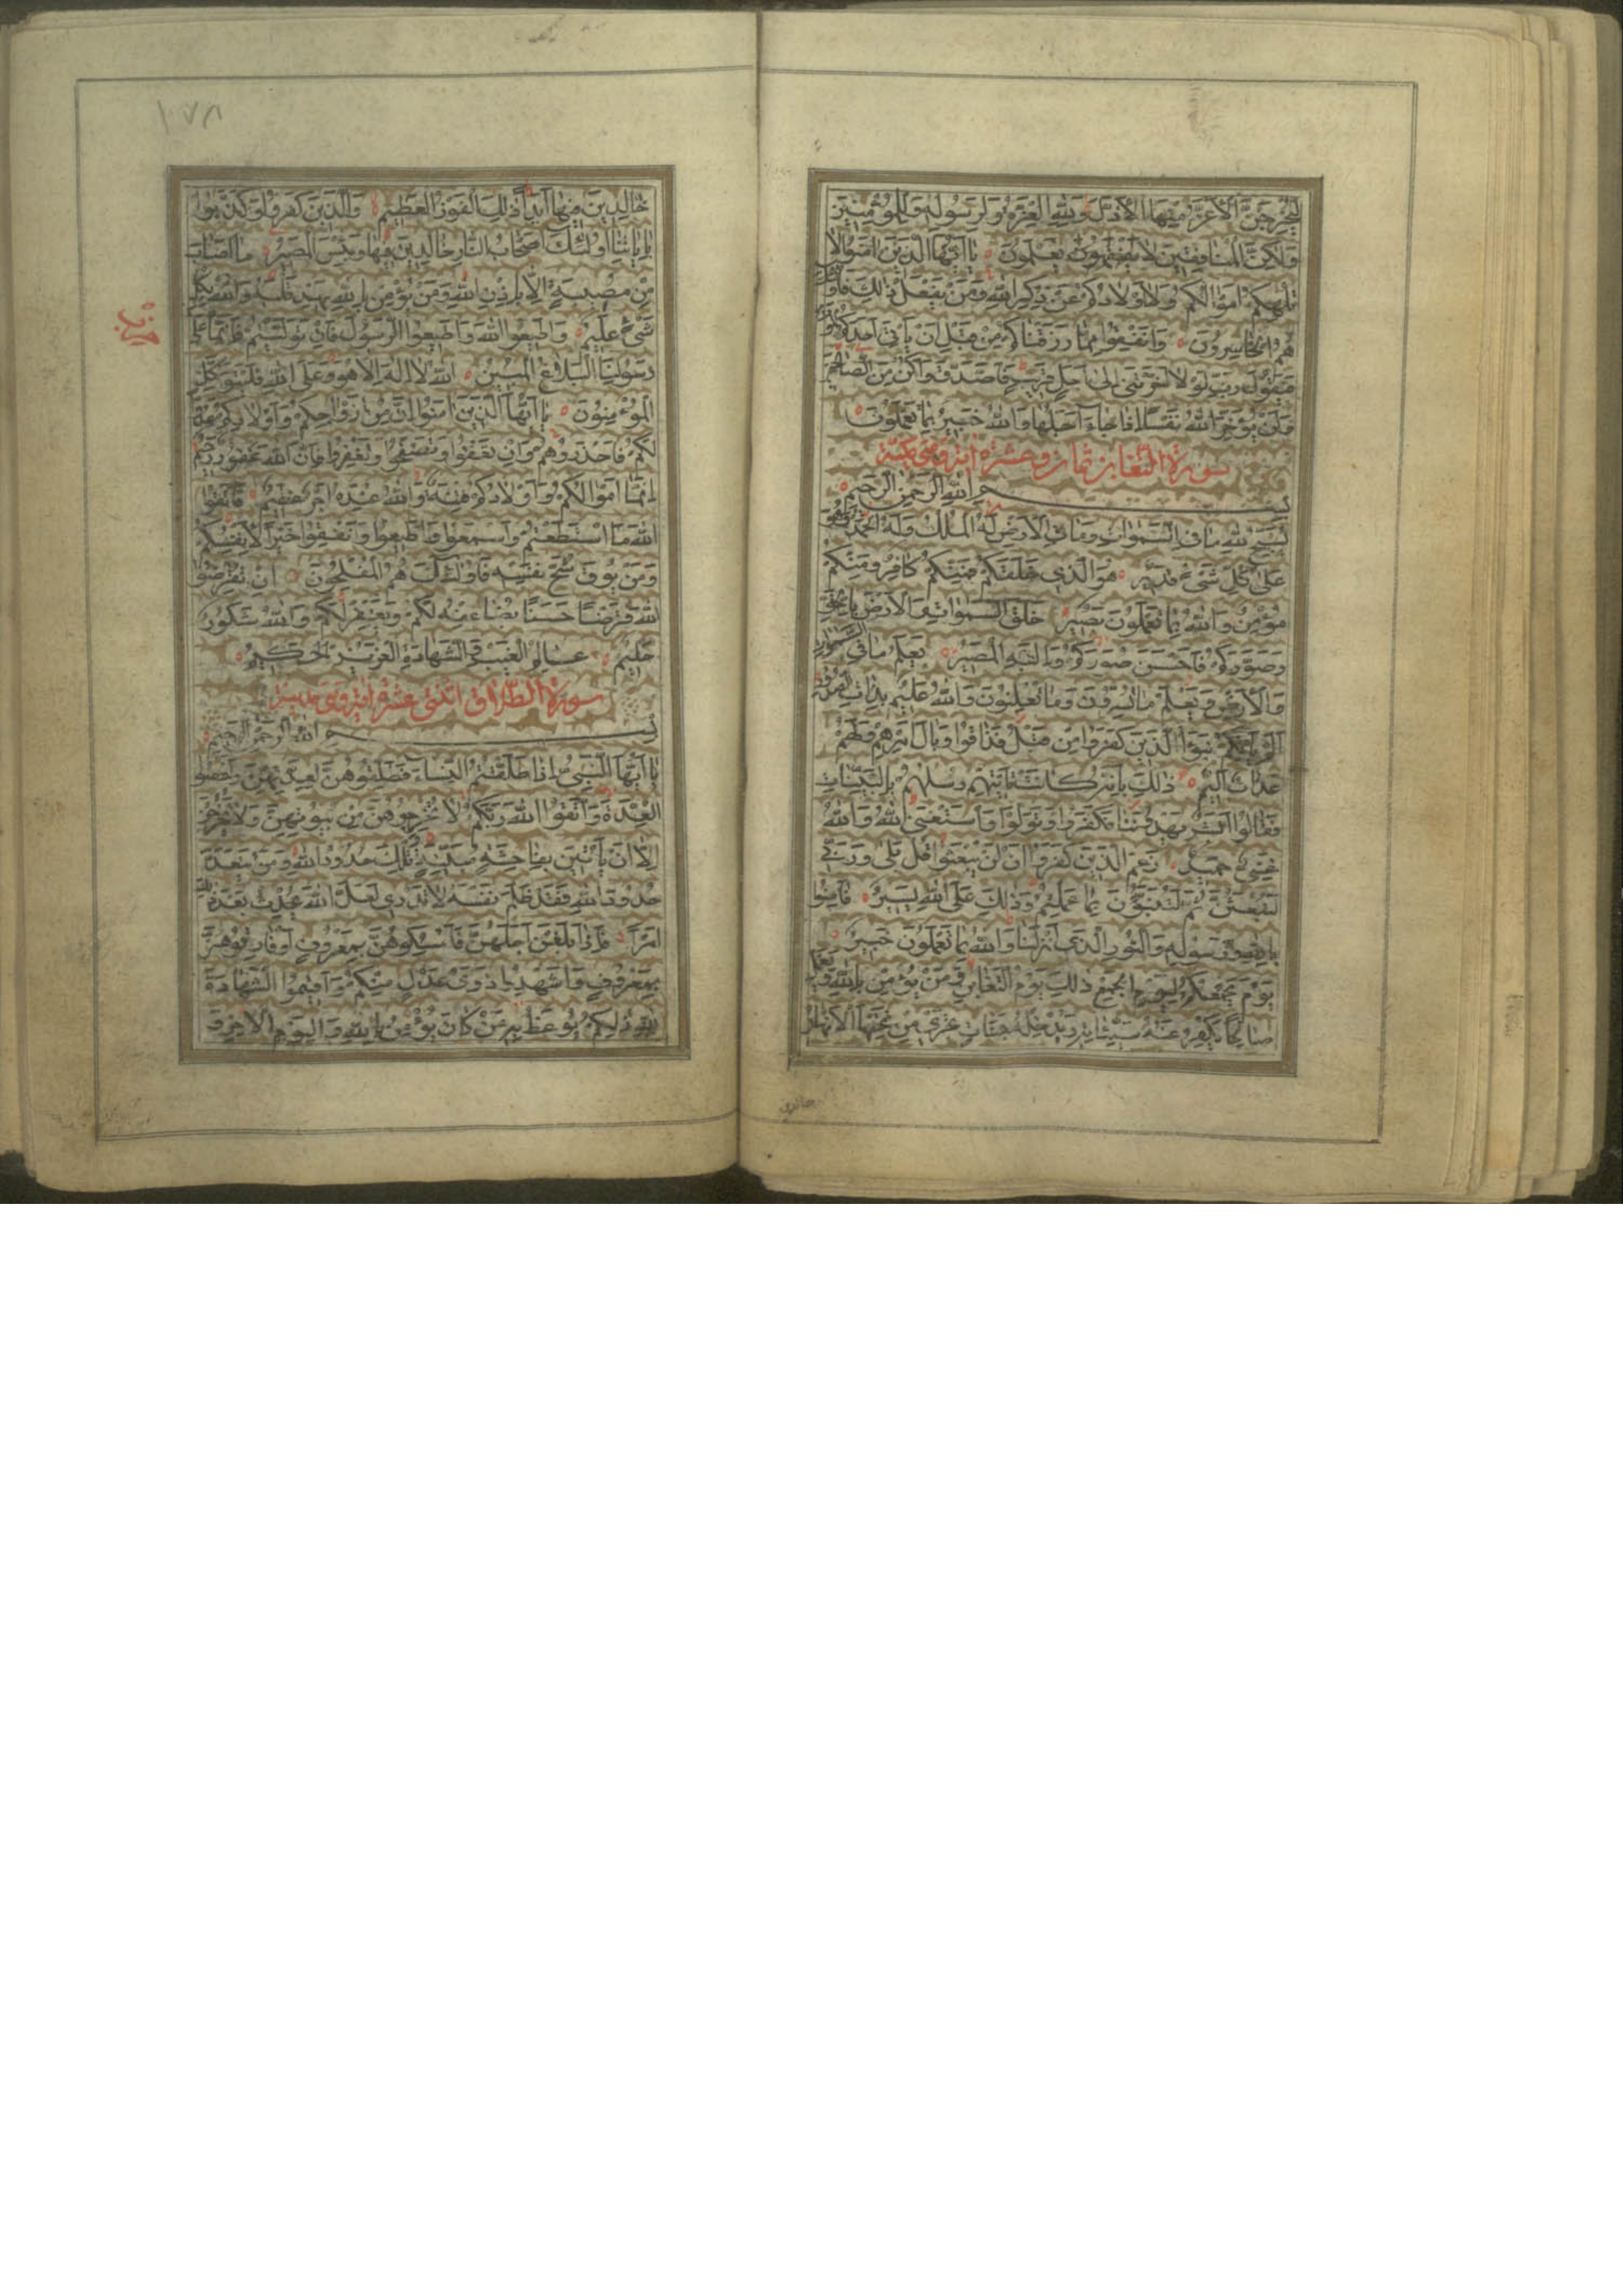 ليخرجن الاعز منها الاذل ولله العزة ولرسوله وللمؤمنين
ولكن المنافقين لا يعلمون يا ايها الذين امنوا لا
تلهكم اموالكم ولا اولادكم عن ذكر الله ومن يفعل ذلك فاولئك
هم الخاسرون وانفقوا مما رزقناكم من قبل ان ياتي احدكم الموت
فيقول رب لولا اخرتني الى اجل قريب فاصدق واكن من الصالحين
ولن يؤخر الله نفسا اذا جاء اجلها والله خبير بما تعملون
سورة التغابن ثمان وعشرة اية وهي مكية
بسم الله الرحمن الرحيم
يسبح لله ما في السموات وما في الارض له الملك وله الحمد وهو
على كل شيء قدير هو الذي خلقكم فمنكم كافر ومنكم
مؤمن والله بما تعملون بصير خلق السموات والارض بالحق
وصوركم فاحسن صوركم واليه المصير يعلم ما في السموات
والارض ويعلم ما تسرون وما تعلنون والله عليم بذات الصدور
الم ياتكم نبؤا الذين كفروا من قبل فذاقوا وبال امرهم ولهم
عذاب اليم ذلك بانه كانت تاتيهم رسلهم بالبينات
فقالوا ابشر يهدوننا فكفروا وتولوا واستغنى الله والله
غني حميد زعم الذين كفروا ان لن يبعثوا قل بلى وربي
لتبعثن ثم لتنبؤن بما عملتم وذلك على الله يسير فامنوا
بالله ورسوله والنور الذي انزلنا والله بما تعملون خبير
يوم يجمعكم ليوم الجمع ذلك يوم التغابن ومن يؤمن بالله ويعمل
صالحا يكفر عنه سيئاته ويدخله جنات تجري من تحتها الانهار
خالدين
١٧٨
خالدين فيها ابدا ذلك الفوز العظيم والذين كفروا وكذبوا
باياتنا اولئك اصحاب النار خالدين فيها وبئس المصير ما اصاب
من مصيبة الا باذن الله ومن يؤمن بالله يهد قلبه والله بكل
شيء عليم واطيعوا الله واطيعوا الرسول فان توليتم فانما على
رسولنا البلاغ المبين الله لا اله الا هو وعلى الله فليتوكل
المؤمنون يا ايها الذين امنوا ان من ازواجكم واولادكم عدوا
لكم فاحذروهم وان تعفوا وتصفحوا وتغفروا فان الله غفور رحيم
انما اموالكم واولادكم فتنة والله عنده اجر عظيم فاتقوا
الله ما استطعتم واسمعوا واطيعوا وانفقوا خيرا لانفسكم
ومن يوق شح نفسه فاولئك هم المفلحون ان تقرضوا
الله قرضا حسنا يضاعفه لكم ويغفر لكم والله شكور
حليم عالم الغيب والشهادة العزيز الحكيم
سورة الطلاق اثنتي عشرة اية وهي مدنية
بسم الله الرحمن الرحيم
يا ايها النبي اذا طلقتم النساء فطلقوهن لعدتهن واحصوا
العدة واتقوا الله ربكم لا تخرجوهن من بيوتهن ولا يخرجن
الا ان ياتين بفاحشة مبينة وتلك حدود الله ومن يتعد
حدود الله فقد ظلم نفسه لا تدري لعل الله يحدث بعد ذلك
امرا فاذا بلغن اجلهن فامسكوهن بمعروف او فارقوهن
بمعروف واشهدوا ذوي عدل منكم واقيموا الشهادة
لله ذلكم يوعظ به من كان يؤمن بالله واليوم الاخر و
حزب